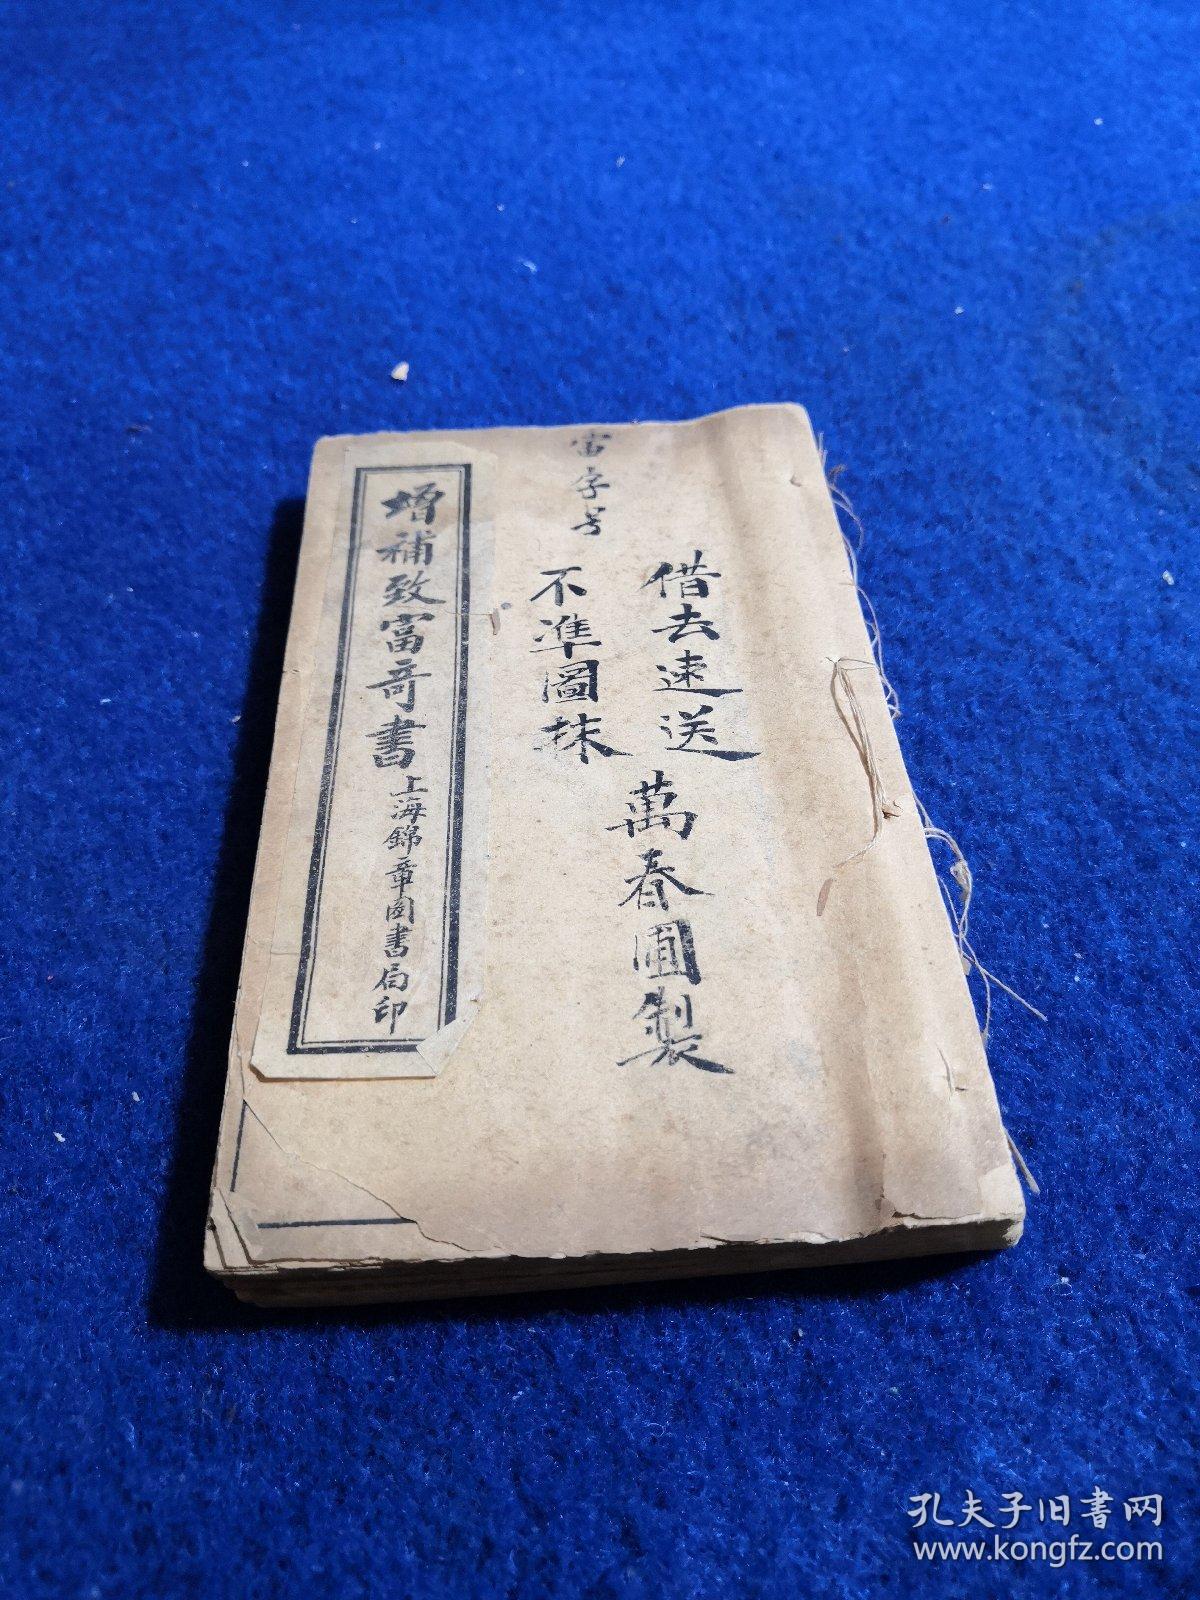 富字号
借去速送
不準圖抹
萬春圃製
增補致富奇書
上海錦章圖書局印
孔夫子旧书网
www.kongfz.com